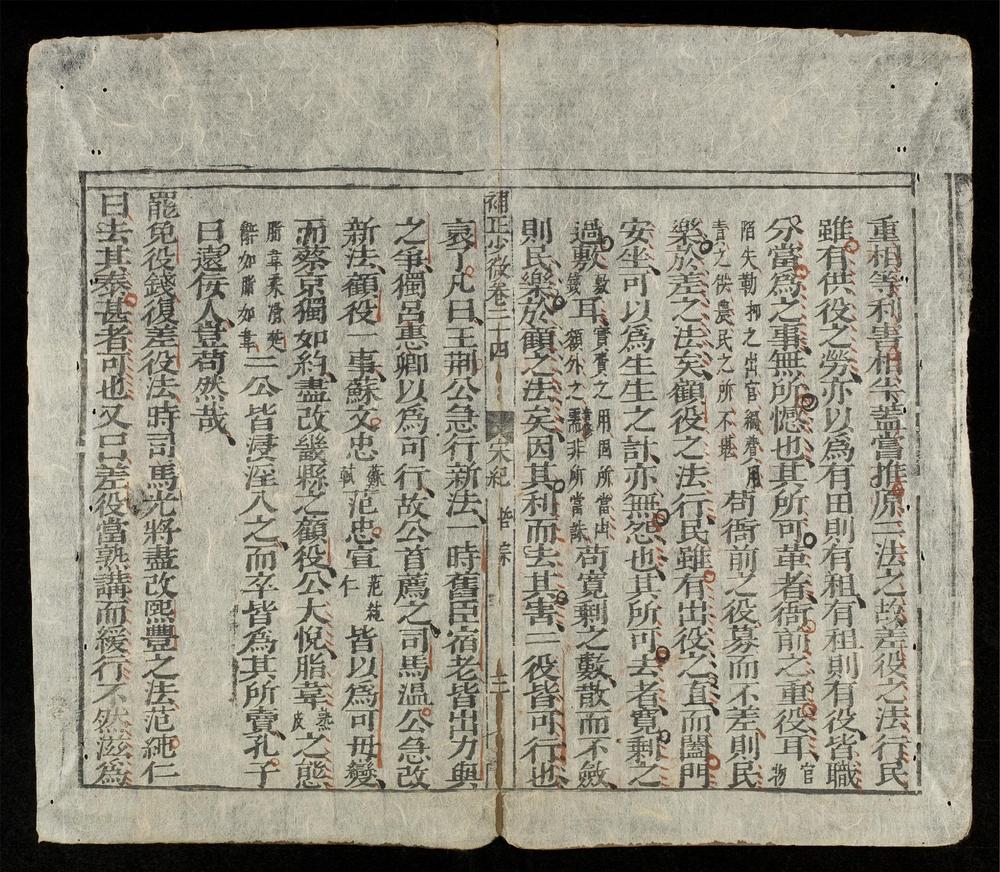 重相等利害相半蓋嘗推原二法之故差役之法行民
雖有供役之勞亦以為有田則有租有租則有役皆職
分當為之事無所憾也其所可革者衙前之重役耳官物
陷失勒抑之出官綱費用責之供農民之所不堪苟衙前之役募而不差則民
樂於差之法矣顧役之法行民雖有出役之直而闔門
安坐可以為生生之計亦無怨也其所可去者寬剩之
過敷耳實費之用固所當出額外之需非所當誅苟寬剩之數散而不斂
則民樂於顧之法矣因其利而去其害二役皆可行也
補正少微卷二十四 宋紀 哲宗 十二
袁了凡曰王荊公急行新法一時舊臣宿老皆出力與
之爭獨呂惠卿以為可行故公首薦之司馬溫公急改
新法顧役一事蘇文忠蘇軾范忠宣范純仁皆以為可毋變
而蔡京獨如約盡改畿縣之顧役公大悅脂韋熟皮之態
脂韋柔滑楚辭如脂如韋二公皆浸淫入之而卒皆為其所賣孔子
曰遠佞人豈苟然哉
罷免役錢復差役法時司馬光將盡改熙豐之法范純仁
曰去其泰甚者可也又曰差役當熟講而緩行不然滋為